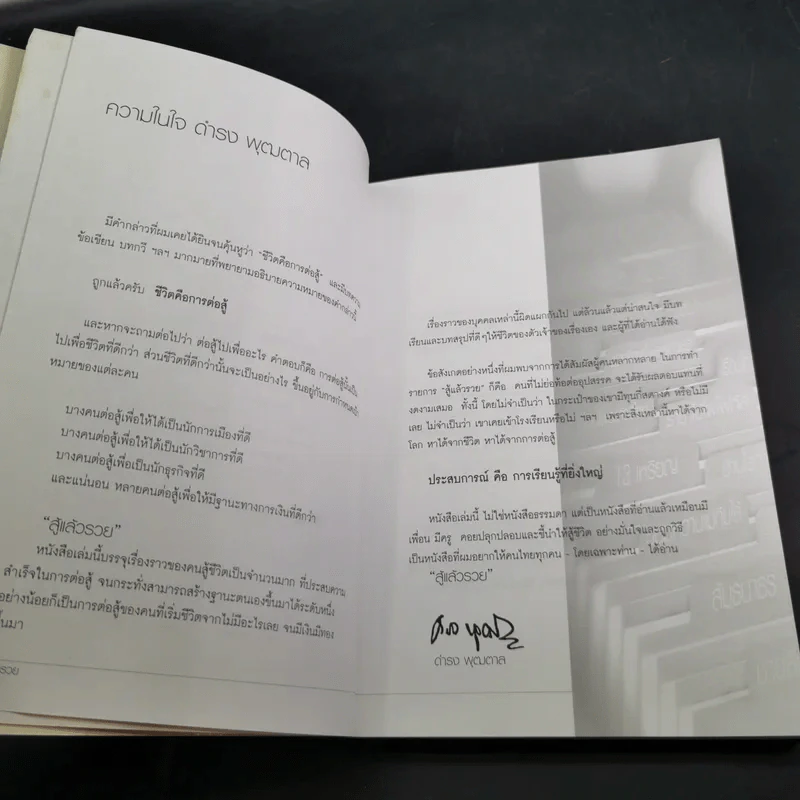 ความในใจ ดำรง พุฒตาล
มีคำกล่าวที่ผมเคยได้ยินจนคุ้นหูว่า "ชีวิตคือการต่อสู้" และมีบทความ
ข้อเขียน บทกวี ฯลฯ มากมายที่พยายามอธิบายความหมายของคำกล่าวนี้
ถูกแล้วครับ ชีวิตคือการต่อสู้
และหากจะถามต่อไปว่า ต่อสู้ไปเพื่ออะไร คำตอบก็คือ การต่อสู้นั้นเป็น
ไปเพื่อชีวิตที่ดีกว่า ส่วนชีวิตที่ดีกว่านั้นจะเป็นอย่างไร ขึ้นอยู่กับการกำหนดนิ
หมายของแต่ละคน
บางคนต่อสู้เพื่อให้ได้เป็นนักการเมืองที่ดี
บางคนต่อสู้เพื่อให้ได้เป็นนักวิชาการที่ดี
บางคนต่อสู้เพื่อเป็นนักธุรกิจที่ดี
และแน่นอน หลายคนต่อสู้เพื่อให้มีฐานะทางการเงินที่ดีกว่า
"สู้แล้วรวย"
หนังสือเล่มนี้บรรจุเรื่องราวของคนสู้ชีวิตเป็นจำนวนมาก ที่ประสบความ
สำเร็จในการต่อสู้ จนกระทั่งสามารถสร้างฐานะตนเองขึ้นมาได้ระดับหนึ่ง
อย่างน้อยก็เป็นการต่อสู้ของคนที่เริ่มชีวิตจากไม่มีอะไรเลย จนมีเงินมีทอง
ขึ้นมา
รวย
เรื่องราวของบุคคลเหล่านี้ผิดแผกกันไป แต่ล้วนแล้วแต่น่าสนใจ มีบท
เรียนและบทสรุปที่ดีๆให้ชีวิตของตัวเจ้าของเรื่องเอง และผู้ที่ได้อ่านได้ฟัง
ข้อสังเกตอย่างหนึ่งที่ผมพบจากการได้สัมผัสผู้คนหลากหลาย ในการทำ
รายการ "สู้แล้วรวย" ก็คือ คนที่ไม่ย่อท้อต่ออุปสรรค จะได้รับผลตอบแทนที่
งดงามเสมอ ทั้งนี้ โดยไม่จำเป็นว่า ในกระเป๋าของเขามีทุนกี่สตางค์ หรือไม่มี
เลย ไม่จำเป็นว่า เขาเคยเข้าโรงเรียนหรือไม่ ฯลฯ เพราะสิ่งเหล่านี้หาได้จาก
โลก หาได้จากชีวิต หาได้จากการต่อสู้
ประสบการณ์ คือ การเรียนรู้ที่ยิ่งใหญ่
หนังสือเล่มนี้ ไม่ใช่หนังสือธรรมดา แต่เป็นหนังสือที่อ่านแล้วเหมือนมี
เพื่อน มีครู คอยปลุกปลอบและชี้นำให้สู้ชีวิต อย่างมั่นใจและถูกวิธี
เป็นหนังสือที่ผมอยากให้คนไทยทุกคน - โดยเฉพาะท่าน - ได้อ่าน
"สู้แล้วรวย"
ดำรง พุฒตาล